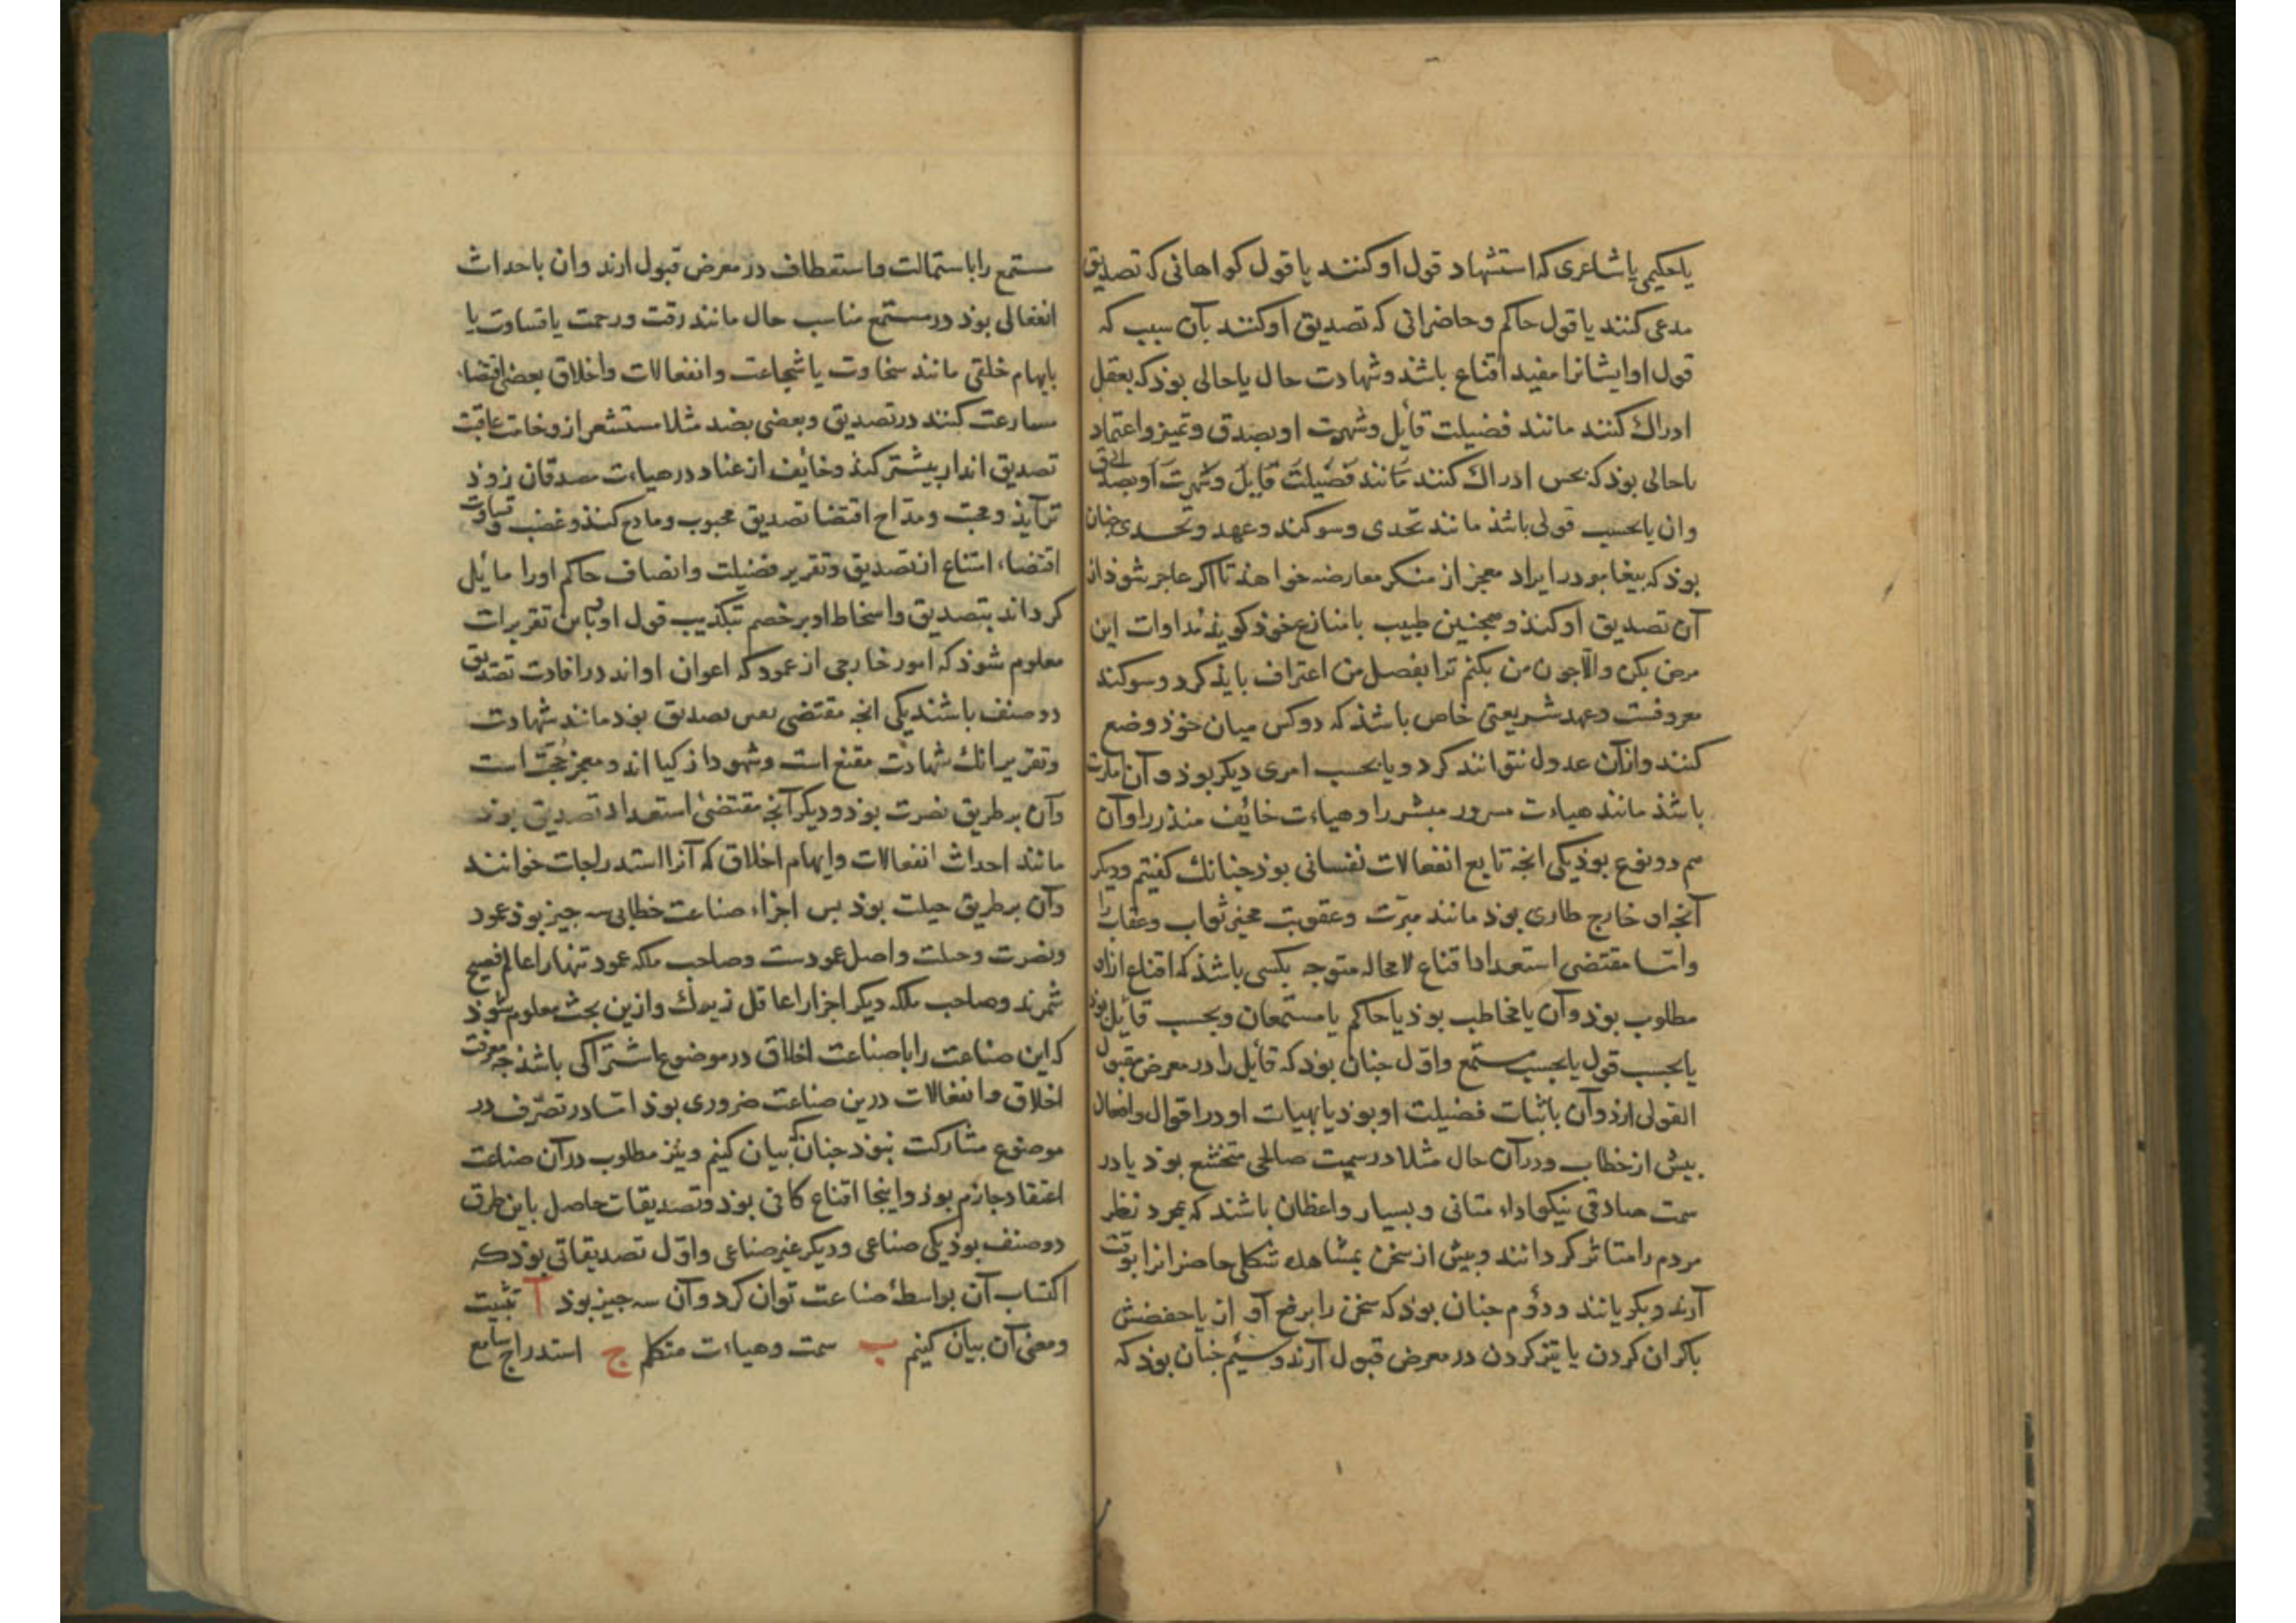 یا حکیمی یا شاعری که استشهاد قول او کنند یا قول کواهانی که تصدیق
مدعی کنند یا قول حاکم و حاضرانی که تصدیق او کنند بآن سبب که
قول او ایشانرا مفید اقناع باشد و شهادت حال یا حالی بوذ که بعقل
ادراک کنند مانند فضیلت قایل و شهرت او بصدق و تمیز و اعتماد
یا حالی بوذ که بحس ادراک کنند مانند فضیلت قایل و شهرت او بصدق
وان یا بحسب قولی باشذ مانند تحدی و سوکند و عهد و تحدی جنان
بوذ که بیغامبر در ایراد معجز از منکر معارضه خواهد تا اکر عاجز شوذ از
آن تصدیق او کنذ و همجنین طبیب با منازع خوذ کویذ مداوات این
مرض بکن والا جون من بکنم ترا بفضل من اعتراف بایذ کرد و سوکند
معروفست و عهد شریعتی خاص باشذ که دو کس میان خوذ وضع
کنند و ازآن عدول نتوانند کرد و یا بحسب امری دیکر بوذ و آن امارت
باشذ مانند هیاءت مسرور مبشر را و هیاءت خائف منذر را و آن
هم دو نوع بوذ یکی انجه تابع انفعالات نفسانی بوذ جنانک کفتیم و دیکر
آنجه از خارج طاری بوذ مانند مبرّت و عقوبت مخبر ثواب و عقاب را
و اما مقتضی استعداد اقناع لامحاله متوجه بکسی باشذ که اقناع ازان
مطلوب بوذ و آن یا مخاطب بوذ یا حاکم یا مستمعان و بحسب قائل بوذ
یا بحسب قول یا بحسب مستمع و اوّل جنان بوذ که قائل را در معرض مقبول
القولی ارذ و آن باثبات فضیلت او بوذ یا بهیات او در اقوال و افعال
بیش از خطاب و در آن حال مثلا در سمت صالحی متخشع بوذ یا در
سمت صادقی نیکو اداء متانی و بسیار واعظان باشند که بمجرد نظر
مردم را متاثر کردانند و بیش از سخن بمشاهده شکلی حاضرانرا بوقت
آرند و بکریانند و دوّم جنان بوذ که سخن را برفع آواز یا خفضش
یا کران کردن یا تیز کردن در معرض قبول آرند و سیم جنان بوذ که
مستمع را باستمالت و استعطاف در معرض قبول ارند وان باحداث
انفعالی بوذ در مستمع مناسب حال مانند رقت و رحمت یا قساوت یا
بایهام خلقی مانند سخاوت یا شجاعت و انفعالات و اخلاق بعضی اقتضاء
مسارعت کنند در تصدیق و بعضی بضد مثلا مستشعر از وخامت عاقبت
تصدیق انذار بیشتر کنذ و خایف از عناد در هیاءت مصدقان زوذ
تر آیذ و محبت و مداح اقتضا تصدیق محبوب و مادح کنذ و غضب و قساوت
اقتضاء امتناع از تصدیق و تقریر فضیلت و انصاف حاکم اورا مایل
کرداند بتصدیق و اسخاط او بر خصم بتکذیب قول او و باین تقریرات
معلوم شوذ که امور خارجی از عمود که اعوان او اند در افادت تصدیق
دو صنف باشند یکی انجه مقتضی نفس تصدیق بوذ مانند شهادت
و تقریر انک شهادت مقنع است و شهود ازکیا اند و معجز حجّت است
وآن بر طریق نصرت بوذ و دیکر آنجه مقتضی استعداد تصدیق بوذ
مانند احداث انفعالات و ایهام اخلاق که آنرا استدراجات خوانند
وآن بر طریق حیلت بوذ بس اجزاء صناعت خطابی سه جیز بوذ عمود
و نصرت و حیلت و اصل عمودست و صاحب ملکه عمود تنها را عالم فصیح
شمرند و صاحب ملکه دیکر اجزا را عاقل زیرک و ازین بحث معلوم شوذ
که این صناعت را با صناعت اخلاق در موضوع اشتراکی باشذ جه معرفت
اخلاق و انفعالات درین صناعت ضروری بوذ اما در تصرّف در
موضوع مشارکت نبوذ جنانکه بیان کنیم و نیز مطلوب در آن صناعت
اعتقاد جازم بوذ و اینجا اقناع کافی بوذ و تصدیقات حاصل باین طرق
دو صنف بوذ یکی صناعی و دیکر غیر صناعی و اوّل تصدیقاتی بوذ که
اکتساب آن بواسطهٔ صناعت توان کرد وآن سه جیز بوذ آ تثبیت
و معنی آن بیان کنیم ب سمت و هیاءت متکلم ج استدراج سامع